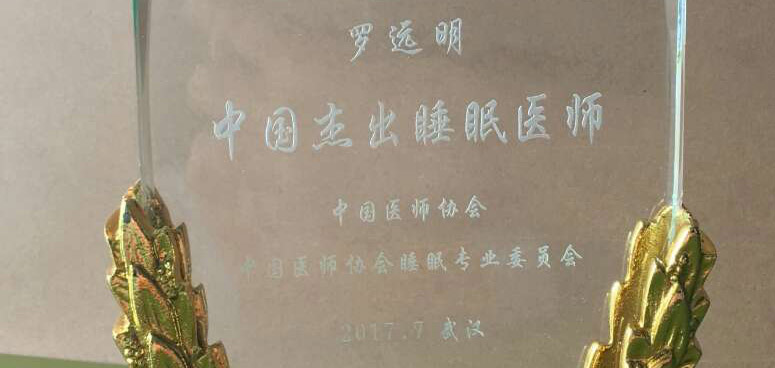 罗远明
中国杰出睡眠医师
中国医师协会
中国医师协会睡眠专业委员会
2017.7 武汉